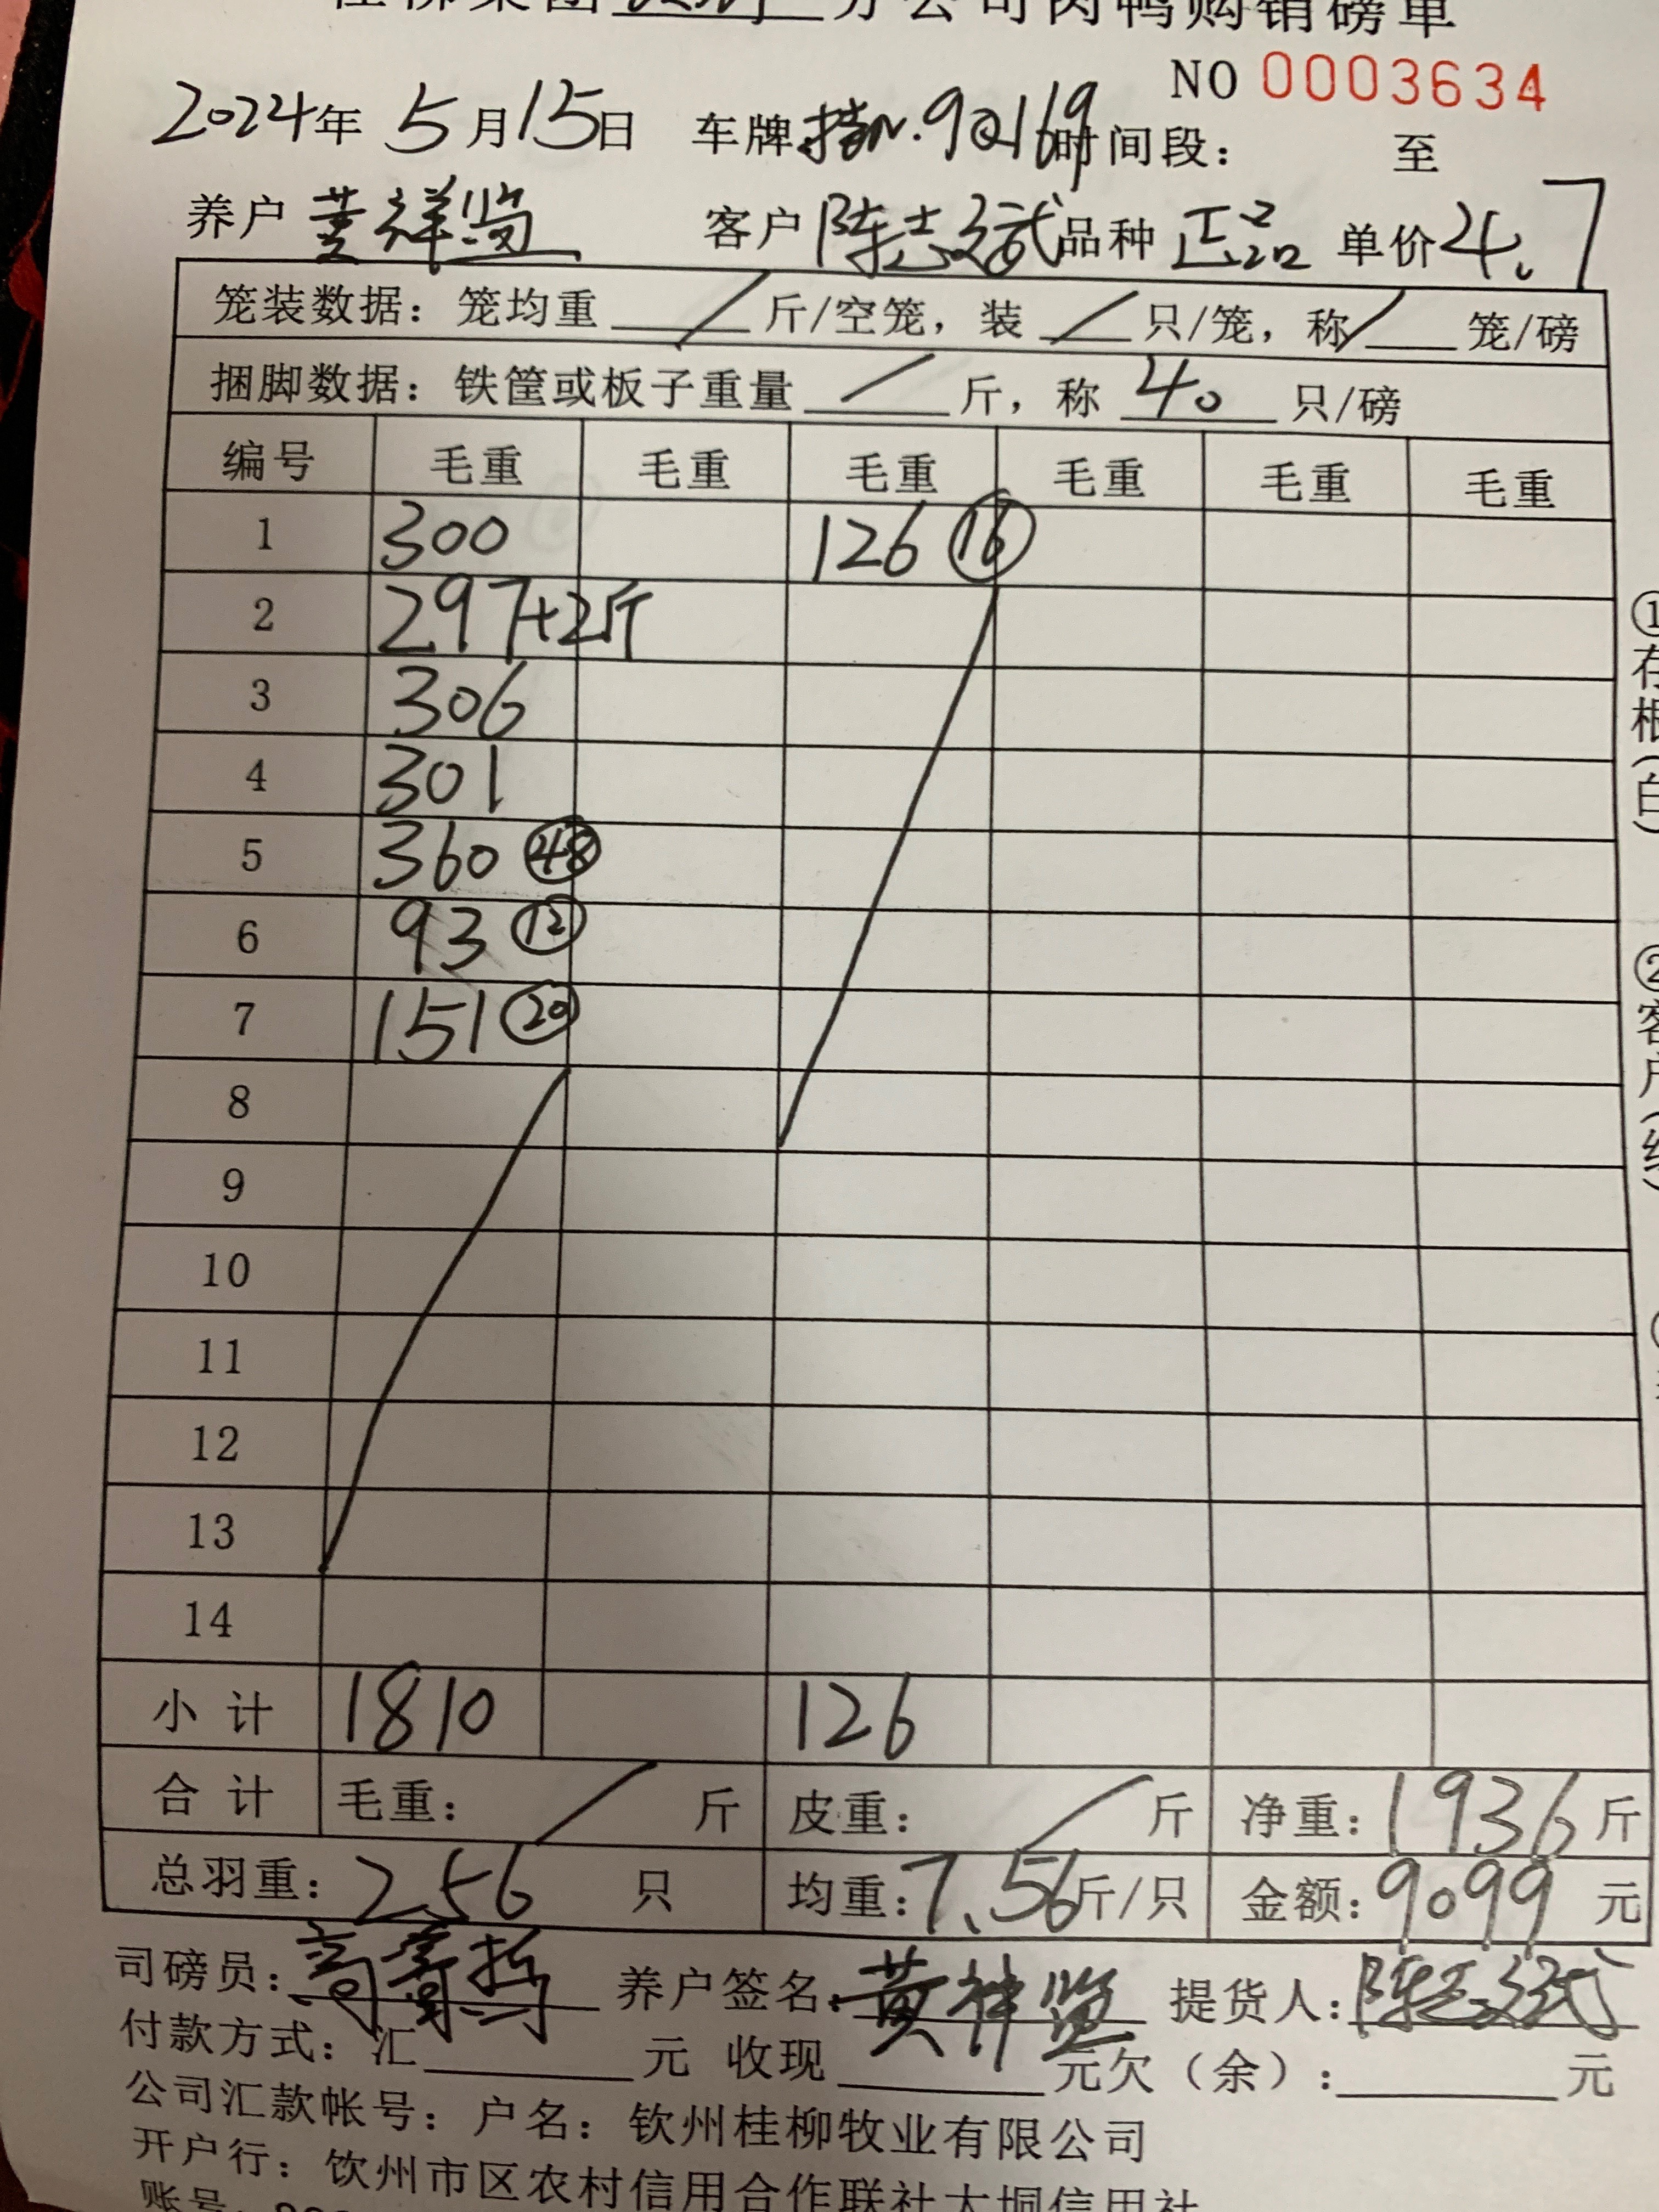 桂柳集团 分公司肉鸭购销磅单
NO 0003634
2024年 5月15日 车牌 时间段: 至
养户 黄祥览 客户 陈志斌 品种 正品 单价 4.7
笼装数据: 笼均重 / 斤/空笼, 装 / 只/笼, 称 / 笼/磅
捆脚数据: 铁筐或板子重量 / 斤, 称 40 只/磅
编号 毛重 毛重 毛重 毛重 毛重 毛重
1 300 126 ⑯
2 297+2斤
3 306
4 301
5 360 ㊽
6 93 ⑫
7 151 ⑳
8
9
10
11
12
13
14
小 计 1810 126
合 计 毛重: / 斤 皮重: / 斤 净重: 1936 斤
总羽重: 256 只 均重: 7.56 斤/只 金额: 9099 元
司磅员: 养户签名: 黄祥览 提货人: 陈志斌
付款方式: 汇 元 收现 元欠(余): 元
公司汇款帐号: 户名: 钦州桂柳牧业有限公司
开户行: 钦州市区农村信用合作联社大垌信用社
账号:
①存根(白)
②客户(红)